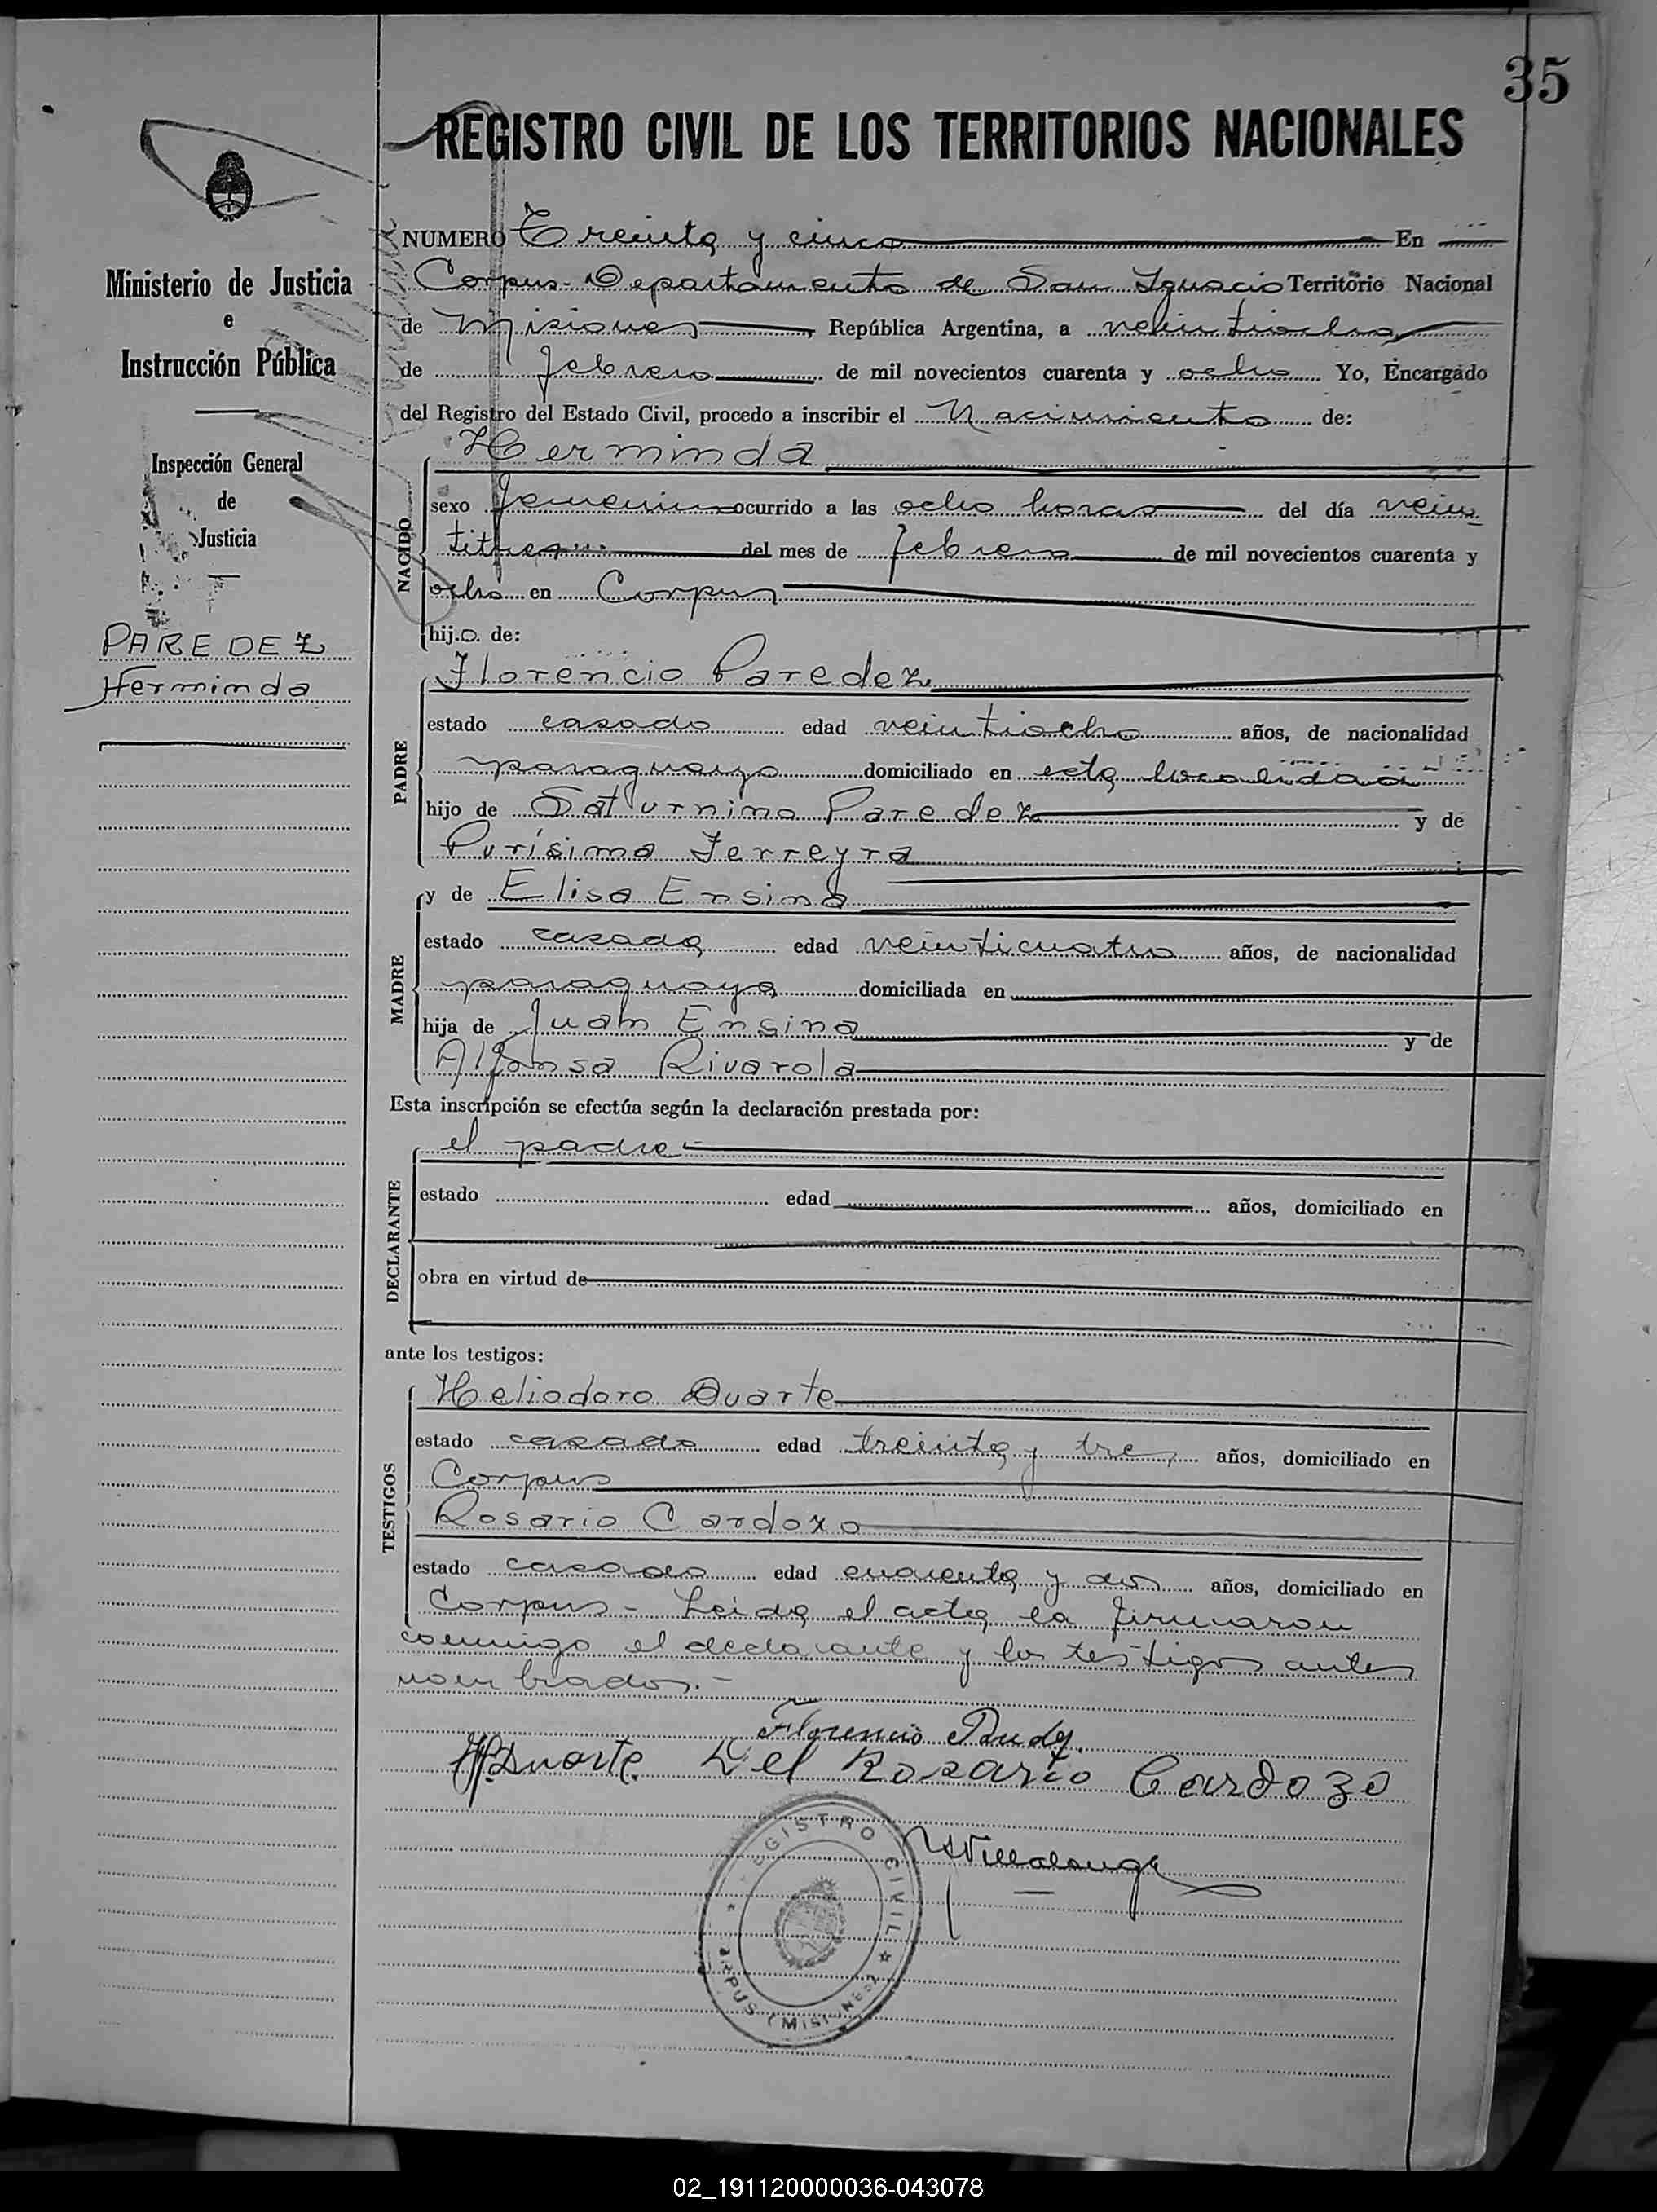 35
REGISTRO CIVIL DE LOS TERRITORIOS NACIONALES
Ministerio de Justicia
e
Instrucción Pública
Inspección General
de
Justicia
PAREDEZ
Herminda
NUMERO Treinta y cinco En
Corpus - Departamento de San Ignacio Territorio Nacional
de Misiones, República Argentina, a veintiocho
de febrero de mil novecientos cuarenta y ocho Yo, Encargado
del Registro del Estado Civil, procedo a inscribir el Nacimiento de:
Herminda
NACIDO
sexo femenino ocurrido a las ocho horas del día vein
titres del mes de febrero de mil novecientos cuarenta y
ocho en Corpus
hij.o. de:
Florencio Paredez
PADRE
estado casado edad veintiocho años, de nacionalidad
paraguayo domiciliado en esta localidad
hijo de Saturnino Paredez y de
Purísima Ferreyra
MADRE
y de Elisa Ensina
estado casada edad veinticuatro años, de nacionalidad
paraguaya domiciliada en
hija de Juan Ensina y de
Alfonsa Rivarola
Esta inscripción se efectúa según la declaración prestada por:
DECLARANTE
el padre
estado edad años, domiciliado en
obra en virtud de
ante los testigos:
TESTIGOS
Heliodoro Duarte
estado casado edad treinta y tres años, domiciliado en
Corpus
Rosario Cardozo
estado casado edad cuarenta y dos años, domiciliado en
Corpus - Leida el acta la firmaron
conmigo el declarante y los testigos antes
nombrados.-
Florencio
H. Duarte Del Rosario Cardozo
Villalonga
REGISTRO CIVIL
CORPUS (MISIONES)
02_191120000036-043078